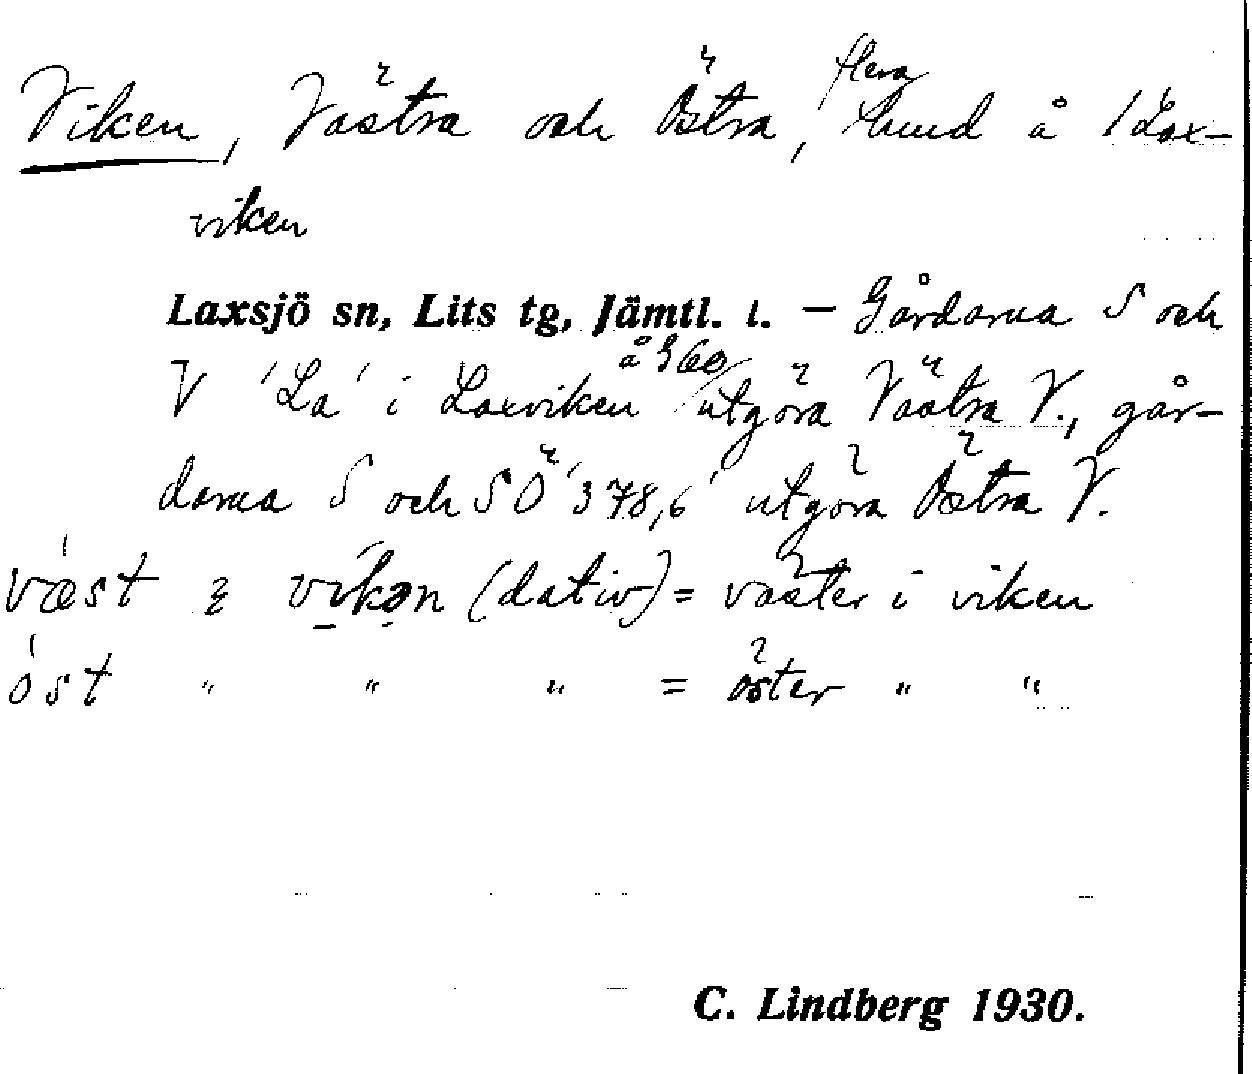 Viken, Västra och Östra, flera hmd å 1 Lax-
viken
Laxsjö sn, Lits tg, Jämtl. l. – Gårdarna S och
V 'La' i Laxviken å g 60 utgöra Västra V., går-
darna S och SÖ '378,6' utgöra Östra V.
væst i vikən (dativ) = väster i viken
öst " " " = öster " "
C. Lindberg 1930.